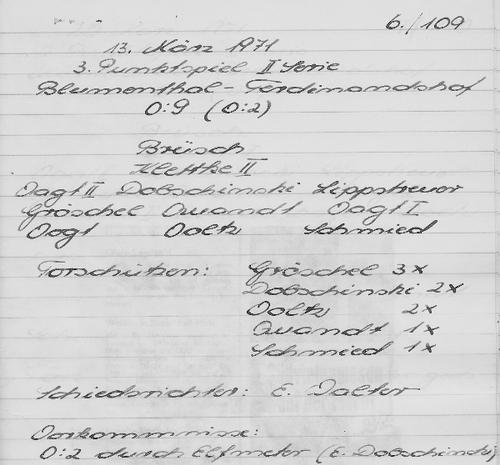 6./109
13. März 1971
3. Punktspiel II Serie
Blumenthal - Ferdinandshof
0:9 (0:2)
Brüsch
Klettke II
Vogt II Dobschinski Lippstreuer
Gröschel Quandt Vogt I
Vogt Voltz Schmied
Torschützen: Gröschel 3x
Dobschinski 2x
Voltz 2x
Quandt 1x
Schmied 1x
Schiedsrichter: E. Walter
Vorkommnisse:
0:2 durch Elfmeter (E. Dobschinski)